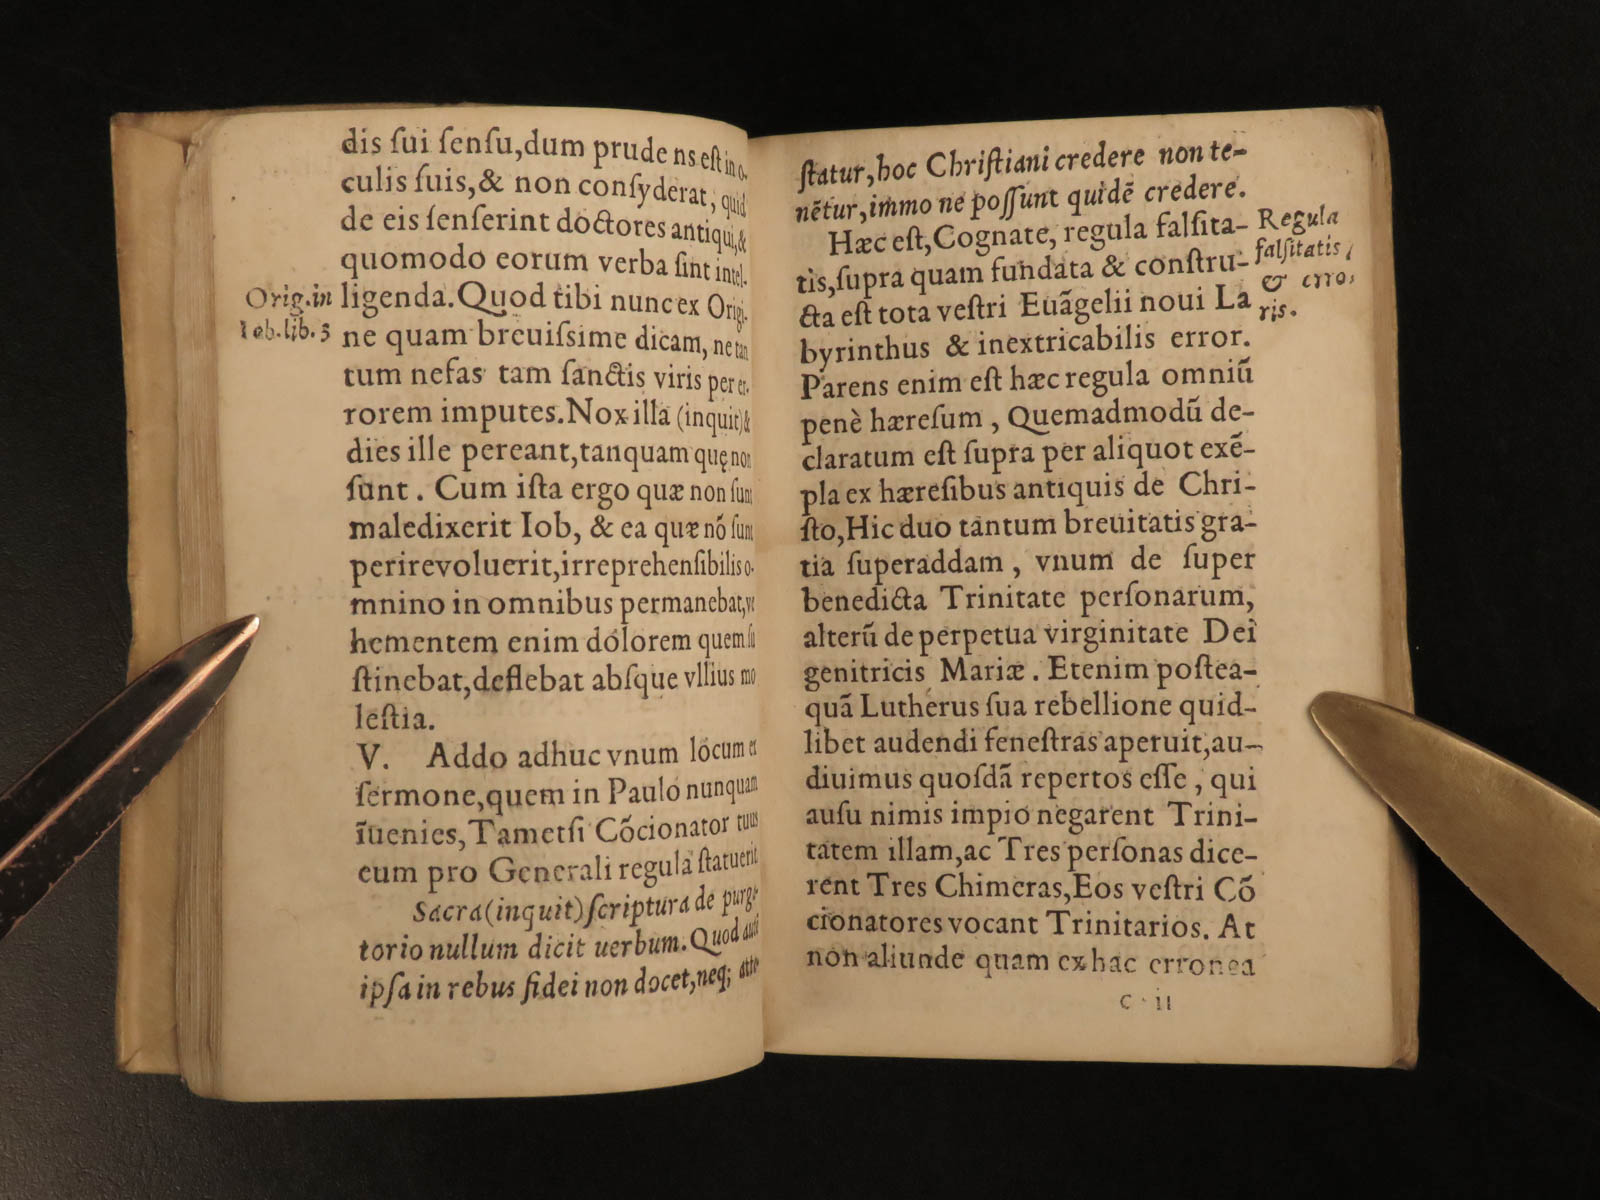 dis ſui ſenſu,dum prudens eſt in o-
culis ſuis,& non conſyderat, quid
de eis ſenſerint doctores antiqui,&
quomodo eorum verba ſint intel-
ligenda.Quod tibi nunc ex Origi-
ne quam breuiſsime dicam, ne tan
tum nefas tam ſanctis viris per er-
rorem imputes.Nox illa (inquit)&
dies ille pereant,tanquam quę non
ſunt. Cum iſta ergo quæ non ſunt
maledixerit Iob, & ea quæ nõ ſunt
perire voluerit,irreprehenſibilis o-
mnino in omnibus permanebat,ve
hementem enim dolorem quem ſu
ſtinebat,deflebat abſque vllius mo
leſtia.
Orig.in
Iob.lib.3
V. Addo adhuc vnum locum et
ſermone,quem in Paulo nunquam
ĩuenies, Tametſi Cõcionator tuus
eum pro Generali regula ſtatuerit
Sacra(inquit)ſcriptura de purga-
torio nullum dicit uerbum. Quod autẽ
ipſa in rebus fidei non docet,neq; atte
ſtatur,hoc Chriſtiani credere non te-
nẽtur,immo ne poſſunt quidẽ credere.
Hæc eſt,Cognate, regula falſita-
tis,ſupra quam fundata & conſtru-
cta eſt tota veſtri Euãgelii noui La
byrinthus & inextricabilis error.
Parens enim eſt hæc regula omniũ
penè hæreſum, Quemadmodũ de-
claratum eſt ſupra per aliquot exẽ-
pla ex hæreſibus antiquis de Chri-
ſto,Hic duo tantum breuitatis gra-
tia ſuperaddam, vnum de ſuper
benedicta Trinitate perſonarum,
alterũ de perpetua virginitate Dei
genitricis Mariæ. Etenim poſtea-
quã Lutherus ſua rebellione quid-
libet audendi feneſtras aperuit,au-
diuimus quoſdã repertos eſſe, qui
auſu nimis impio negarent Trini-
tatem illam,ac Tres perſonas dice-
rent Tres Chimeras,Eos veſtri Cõ
cionatores vocant Trinitarios. At
non aliunde quam ex hac erronea
Regula
falſitatis,
& erro,
ris.
C ii